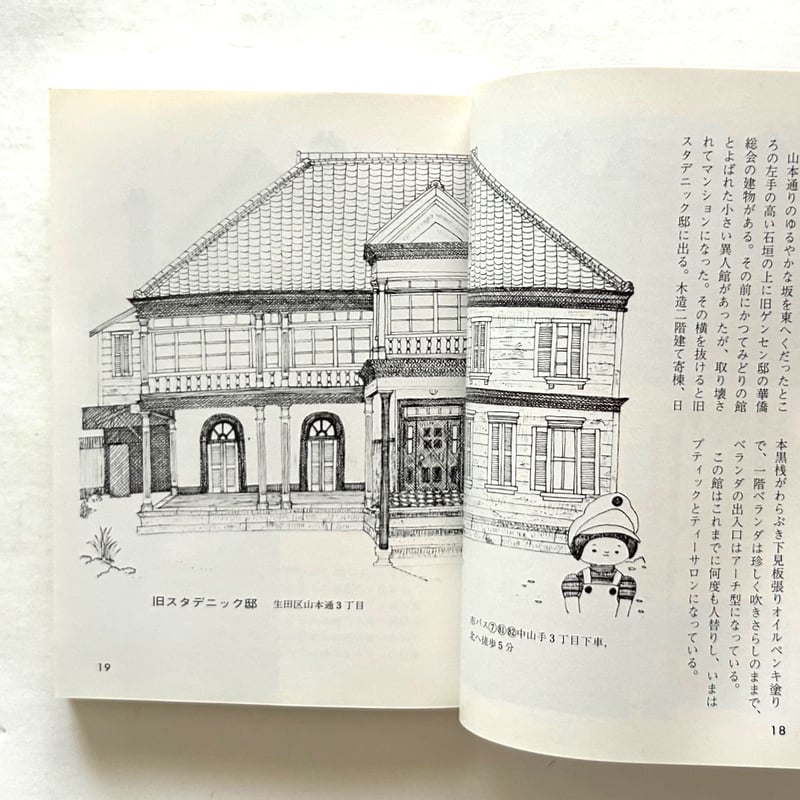 山本通りのゆるやかな坂を東へくだったとこ
ろの左手の高い石垣の上に旧ゲンセン邸の華僑
総会の建物がある。その前にかつてみどりの館
とよばれた小さい異人館があったが、取り壊さ
れてマンションになった。その横を抜けると旧
スタデニック邸に出る。木造二階建て寄棟、日
本黒桟がわらぶき下見板張りオイルペンキ塗り
で、一階ベランダは珍しく吹きさらしのままで、
ベランダの出入口はアーチ型になっている。
この館はこれまでに何度も人替りし、いまは
ブティックとティーサロンになっている。
市バス⑦㉛82中山手3丁目下車,
北へ徒歩5分
18
旧スタデニック邸 生田区山本通3丁目
19